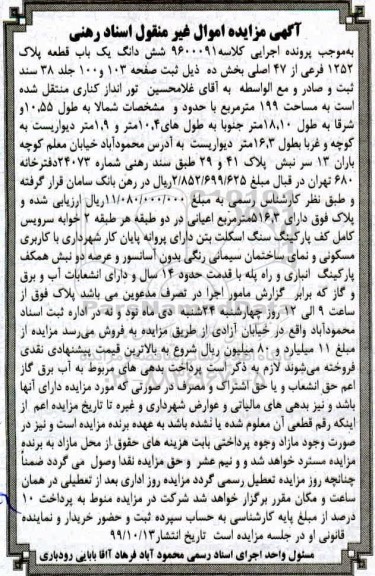 آگهی مزایده اموال غیر منقول اسناد رهنی
به‌موجب پرونده اجرایی کلاسه۹۶۰۰۰۹۱ شش دانگ یک باب قطعه پلاک
۱۲۵۲ فرعی از ۴۷ اصلی بخش ده ذیل ثبت صفحه ۱۰۳ و۱۰۰ جلد ۳۸ سند
ثبت و صادر و مع الواسطه به آقای غلامحسین تور انداز کناری منتقل شده
است به مساحت ۱۹۹ مترمربع با حدود و مشخصات شمالا به طول ۱۰،۵۵و
شرقا به طول ۱۸،۱۰متر جنوبا به طول های۱۰،۴متر و ۱،۹متر دیواریست به
کوچه و غربا بطول ۱۶،۳متر دیواریست به آدرس محمودآباد خیابان معلم کوچه
باران ۱۳ سر نبش پلاک ۴۱ و ۲۹ طبق سند رهنی شماره ۲۴۰۷۳دفترخانه
۶۸۰ تهران در قبال مبلغ ۲/۸۵۲/۶۹۹/۶۲۵ریال در رهن بانک سامان قرار گرفته
و طبق نظر کارشناس رسمی به مبلغ ۱۱/۰۸۰/۰۰۰/۰۰۰ریال ارزیابی شده و
پلاک فوق دارای ۵۱۶،۳مترمربع اعیانی در دو طبقه هر طبقه ۲ خوابه سرویس
کامل کف پارکینگ سنگ اسکلت بتن دارای پروانه پایان کار شهرداری با کاربری
مسکونی و نمای ساختمان سیمانی رنگی بدون آسانسور و عرصه دو نبش همکف
پارکینگ انباری و راه پله با قدمت حدود ۱۴ سال و دارای انشعابات آب و برق
و گاز که برابر گزارش مامور اجرا در تصرف مدعوین می باشد پلاک فوق از
ساعت ۹ الی ۱۲ روز چهارشنبه ۲۴شنبه دی ماه نود و نه در اداره ثبت اسناد
محمودآباد واقع در خیابان آزادی از طریق مزایده به فروش می‌رسد مزایده از
مبلغ ۱۱ میلیارد و ۸۰ میلیون ریال شروع به بالاترین قیمت پیشنهادی نقدی
فروخته می‌شوند لازم به ذکر است پرداخت بدهی های مربوط به آب برق گاز
اعم حق انشعاب و یا حق اشتراک و مصرف در صورتی که مورد مزایده دارای آنها
باشد و نیز بدهی های مالیاتی و عوارض شهرداری و غیره تا تاریخ مزایده اعم از
اینکه رقم قطعی آن معلوم شده یا نشده باشد به عهده برنده مزایده است و نیز در
صورت وجود مازاد وجوه پرداختی بابت هزینه های حقوق از محل مازاد به برنده
مزایده مسترد خواهد شد و و نیم عشر و حق مزایده نقدا وصول می گردد ضمناً
چنانچه روز مزایده تعطیل رسمی گردد مزایده روز اداری بعد از تعطیلی در همان
ساعت و مکان مقرر برگزار خواهد شد شرکت در مزایده منوط به پرداخت ۱۰
درصد از مبلغ پایه کارشناسی به حساب سپرده ثبت و حضور خریدار و نماینده
قانونی او در جلسه مزایده است تاریخ انتشار۹۹/۱۰/۱۳
مسئول واحد اجرای اسناد رسمی محمود آباد فرهاد آاقا بابایی رودباری